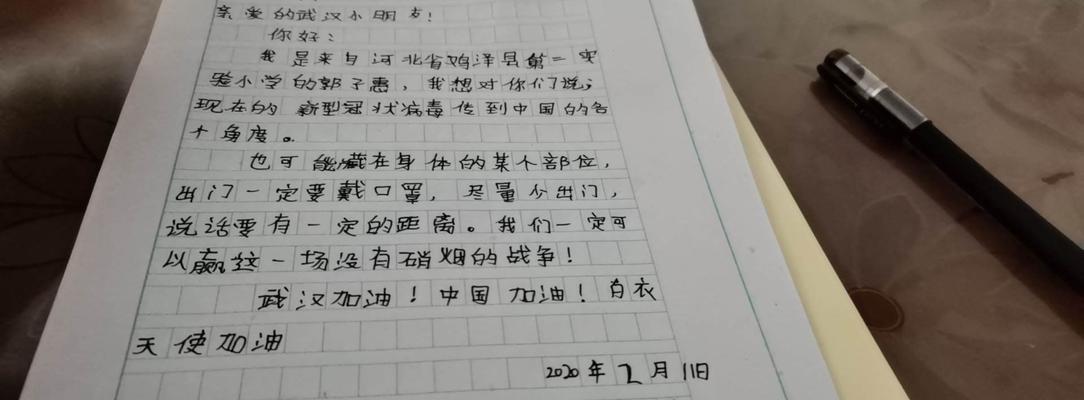 亲爱的武汉小朋友！
你好：
我是来自河北省鸡泽县第二实
验小学的郭子惠，我想对你们说；
现在的新型冠状病毒传到中国的各
个角度。
也可能藏在身体的某个部位，
出门一定要戴口罩，尽量少出门，
说话要有一定的距离。我们一定可
以赢这一场没有硝烟的战争！
武汉加油！中国加油！白衣
天使加油
2020年2月11日